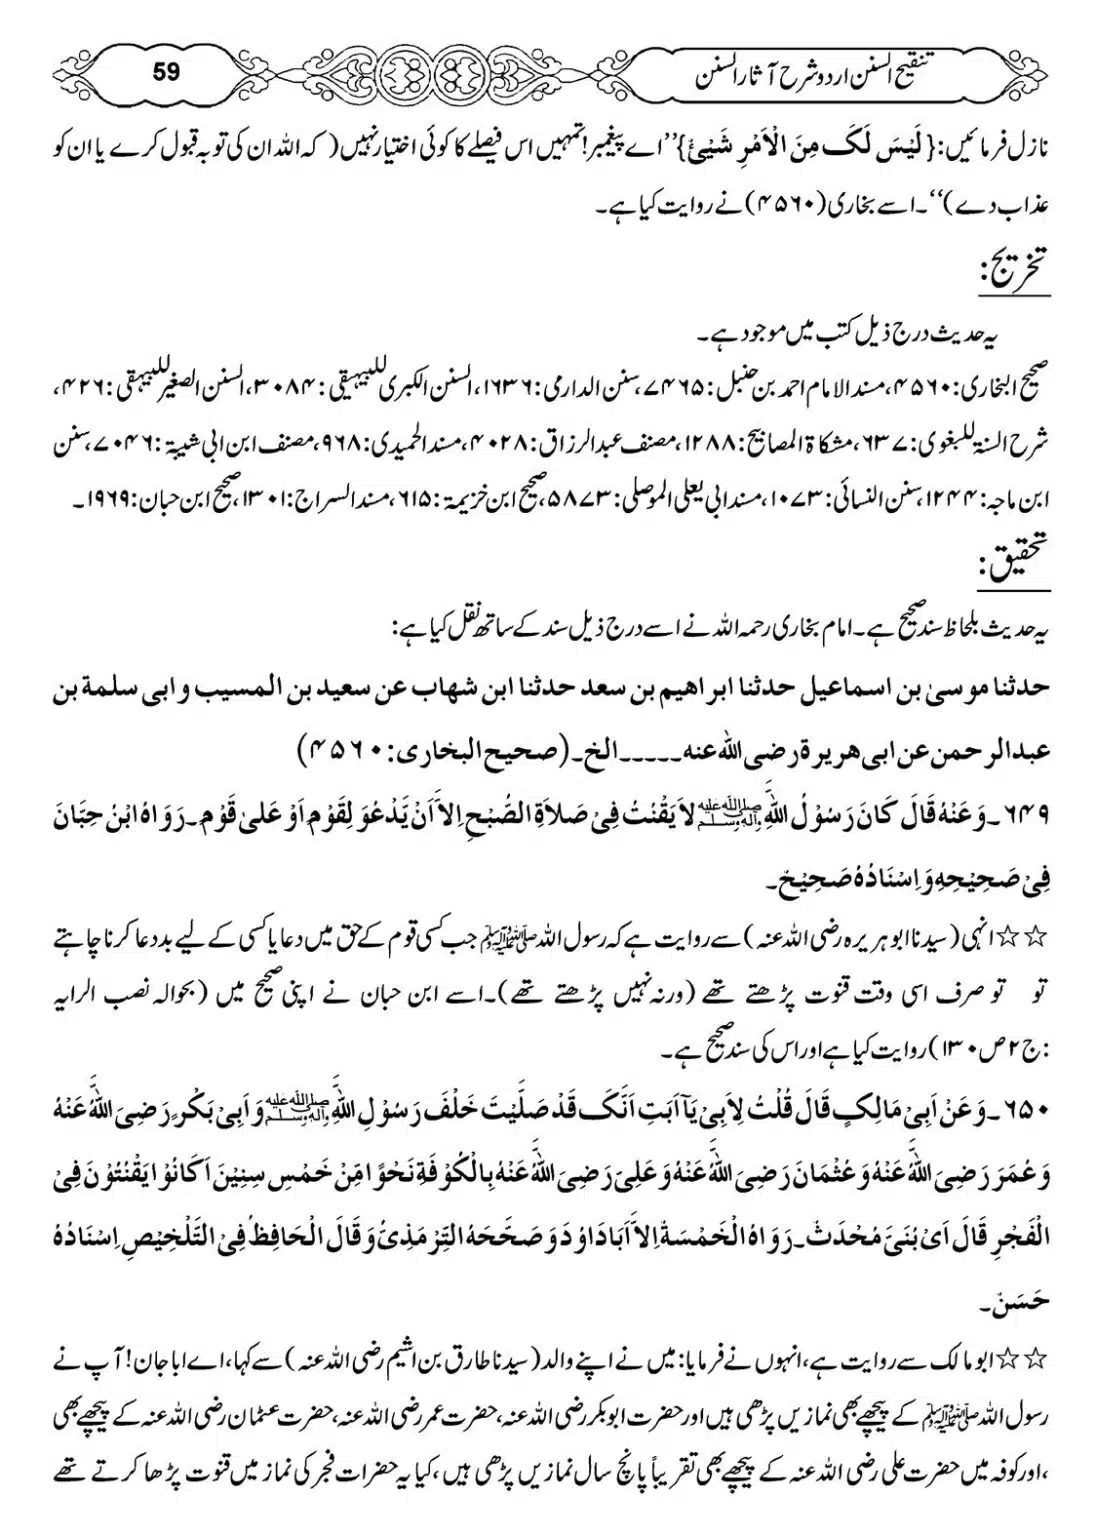 تنقیح السنن اردو شرح آثار السنن
59
نازل فرمائیں: {لَیْسَ لَکَ مِنَ الْاَمْرِ شَیْئٌ} ’’اے پیغمبر! تمہیں اس فیصلے کا کوئی اختیار نہیں (کہ اللہ ان کی توبہ قبول کرے یا ان کو
عذاب دے)‘‘۔ اسے بخاری (۴۵۶۰) نے روایت کیا ہے۔
تخریج:
یہ حدیث درج ذیل کتب میں موجود ہے۔
صحیح البخاری: ۴۵۶۰، مسند الامام احمد بن حنبل: ۷۴۶۵، سنن الدارمی: ۱۶۳۶، السنن الکبری للبیہقی: ۳۰۸۴، السنن الصغیر للبیہقی: ۴۲۶،
شرح السنۃ للبغوی: ۶۳۷، مشکاۃ المصابیح: ۱۲۸۸، مصنف عبدالرزاق: ۴۰۲۸، مسند الحمیدی: ۹۶۸، مصنف ابن ابی شیبۃ: ۷۰۴۶، سنن
ابن ماجہ: ۱۲۴۴، سنن النسائی: ۱۰۷۳، مسند ابی یعلی الموصلی: ۵۸۷۳، صحیح ابن خزیمۃ: ۶۱۵، مسند السراج: ۱۳۰۱، صحیح ابن حبان: ۱۹۶۹۔
تحقیق:
یہ حدیث بلحاظ سند صحیح ہے۔ امام بخاری رحمہ اللہ نے اسے درج ذیل سند کے ساتھ نقل کیا ہے:
حدثنا موسیٰ بن اسماعیل حدثنا ابراھیم بن سعد حدثنا ابن شھاب عن سعید بن المسیب و ابی سلمۃ بن
عبدالرحمن عن ابی ھریرۃ رضی اللہ عنہ۔۔۔۔۔ الخ۔ (صحیح البخاری: ۴۵۶۰)
۶۴۹۔ وَعَنْہُ قَالَ کَانَ رَسُوْلُ اللّٰہِ ﷺ لَا یَقْنُتُ فِیْ صَلاَۃِ الصُّبْحِ اِلاَّ اَنْ یَّدْعُوَ لِقَوْمٍ اَوْ عَلیٰ قَوْمٍ۔ رَوَاہُ ابْنُ حِبَّانَ
فِیْ صَحِیْحِہٖ وَاِسْنَادُہُ صَحِیْحٌ۔
☆☆ انہی (سیدنا ابوہریرہ رضی اللہ عنہ) سے روایت ہے کہ رسول اللہ ﷺ جب کسی قوم کے حق میں دعا یا کسی کے لیے بددعا کرنا چاہتے
تو تو صرف اسی وقت قنوت پڑھتے تھے (ورنہ نہیں پڑھتے تھے)۔ اسے ابن حبان نے اپنی صحیح میں (بحوالہ نصب الرایہ
: ج ۲ ص ۱۳۰) روایت کیا ہے اور اس کی سند صحیح ہے۔
۶۵۰۔ وَعَنْ اَبِیْ مَالِکٍ قَالَ قُلْتُ لِاَبِیْ یَآ اَبَتِ اَنَّکَ قَدْ صَلَّیْتَ خَلْفَ رَسُوْلِ اللّٰہِ ﷺ وَاَبِیْ بَکْرٍ رَضِیَ اللّٰہُ عَنْہُ
وَعُمَرَ رَضِیَ اللّٰہُ عَنْہُ وَعُثْمَانَ رَضِیَ اللّٰہُ عَنْہُ وَعَلِیٍّ رَضِیَ اللّٰہُ عَنْہُ بِالْکُوْفَۃِ نَحْوًا مِّنْ خَمْسِ سِنِیْنَ اَکَانُوْا یَقْنُتُوْنَ فِیْ
الْفَجْرِ قَالَ اَیْ بُنَیَّ مُحْدَثٌ۔ رَوَاہُ الْخَمْسَۃُ اِلاَّ اَبَا دَاوٗدَ وَصَحَّحَہُ التِّرْمَذِیُّ وَقَالَ الْحَافِظُ فِیْ التَّلْخِیْصِ اِسْنَادُہُ
حَسَنٌ۔
☆☆ ابو مالک سے روایت ہے، انہوں نے فرمایا: میں نے اپنے والد (سیدنا طارق بن اشیم رضی اللہ عنہ) سے کہا، اے ابا جان! آپ نے
رسول اللہ ﷺ کے پیچھے بھی نمازیں پڑھی ہیں اور حضرت ابوبکر رضی اللہ عنہ، حضرت عمر رضی اللہ عنہ، حضرت عثمان رضی اللہ عنہ کے پیچھے بھی
، اور کوفہ میں حضرت علی رضی اللہ عنہ کے پیچھے بھی تقریباً پانچ سال نمازیں پڑھی ہیں، کیا یہ حضرات فجر کی نماز میں قنوت پڑھا کرتے تھے